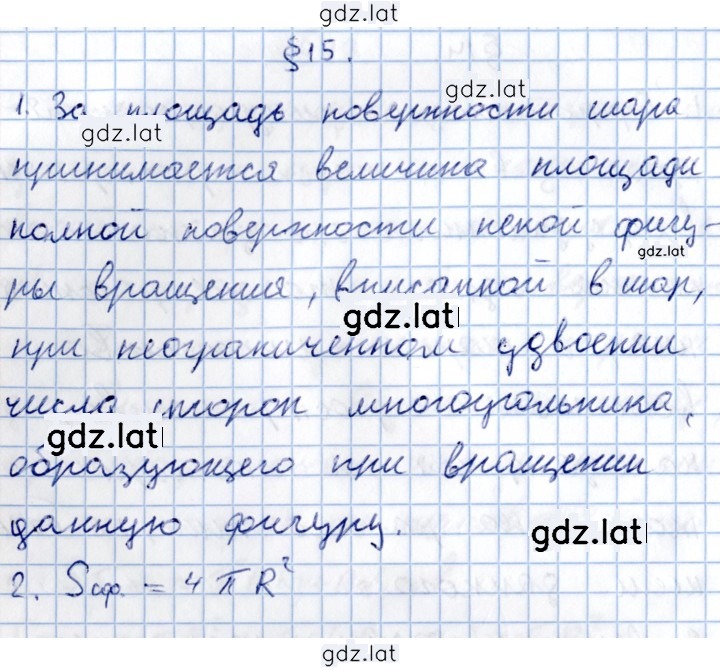 gdz.lat
§15.
gdz.lat
1. За площадь поверхности шара
gdz.lat
принимается величина площади
полной поверхности некой фигу-
gdz.lat
ры вращения, вписанной в шар,
gdz.lat
при неограниченном удвоении
числа сторон многоугольника,
gdz.lat
образующего при вращении
данную фигуру.
gdz.lat
2. Sсф. = 4πR²
gdz.lat